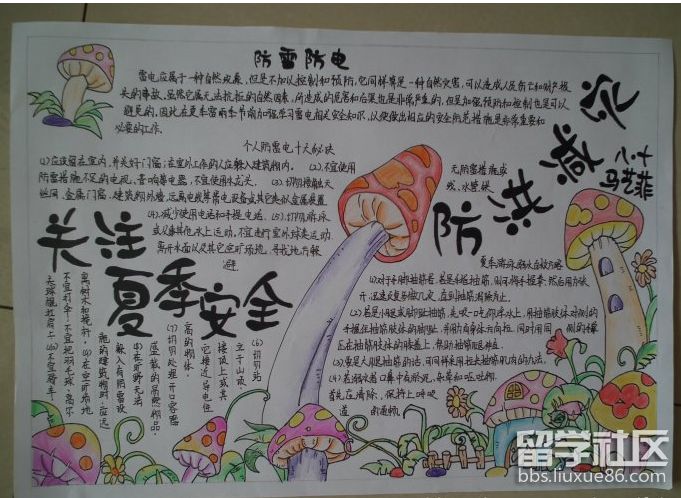 防雷防电
雷电应属于一种自然现象,但是不加以控制和预防,它同样算是一种自然灾害,可以造成人员伤亡和财产损
失的事故。虽然它属无法抗拒的自然因素,所造成的危害和后果也是非常严重的,但是加强预防和控制也是可以
避免的,因此在夏季雷雨季节需加强学习雷电相关安全知识,以便做出相应的安全防范措施是非常重要和
必要的工作。
个人防雷电十大秘诀
(1)应该留在室内,并关好门窗;在室外工作的人应躲入建筑物内。(2)不宜使用
无防雷措施或
防雷措施不足的电视、音响等电器,不宜使用水龙头。(3)切勿接触天
线、水管
金属门窗、建筑物外墙,远离电线等带电设备或其它类似金属装置
(4)减少使用电话和手提电话。(5)切勿游泳
或从事其他水上运动,不宜进行室外球类运动
离开水面以及其它空旷场地,寻找地方躲
避
关注
夏季安全
防洪
八·十
马艺菲
(6)切勿站
立于山顶、
楼顶上或其
它接近导电性
高的物体。
(7)切勿处理开口容器
盛载的易燃物品。
(8)在旷野无法
躲入有防雷设
施的建筑物内时,应远
离树木和桅杆。(9)在空旷场地
不宜打伞,不宜把羽毛球、高尔
夫球棍扛肩上。(10)不宜骑车
夏季游泳溺水自救方略
(1)对于手脚抽筋者,若是手指抽筋,则可将手握拳,然后用力张
开,迅速反复多做几次,直到抽筋消除为止。
(2)若是小腿或脚趾抽筋,先吸一口气仰浮水上,用抽筋肢体对侧的
手握住抽筋肢体的脚趾,并用力向身体方向拉,同时用同侧的手掌
压在抽筋肢体的膝盖上,帮助抽筋腿伸直
(3)要是大腿抽筋的话,可同样采用拉长抽筋肌肉的办法。
(4)若溺水者口鼻中有淤泥、杂草和呕吐物
首先应清除,保持上呼吸
道的通畅
留学社区
bbs.liuxue86.com